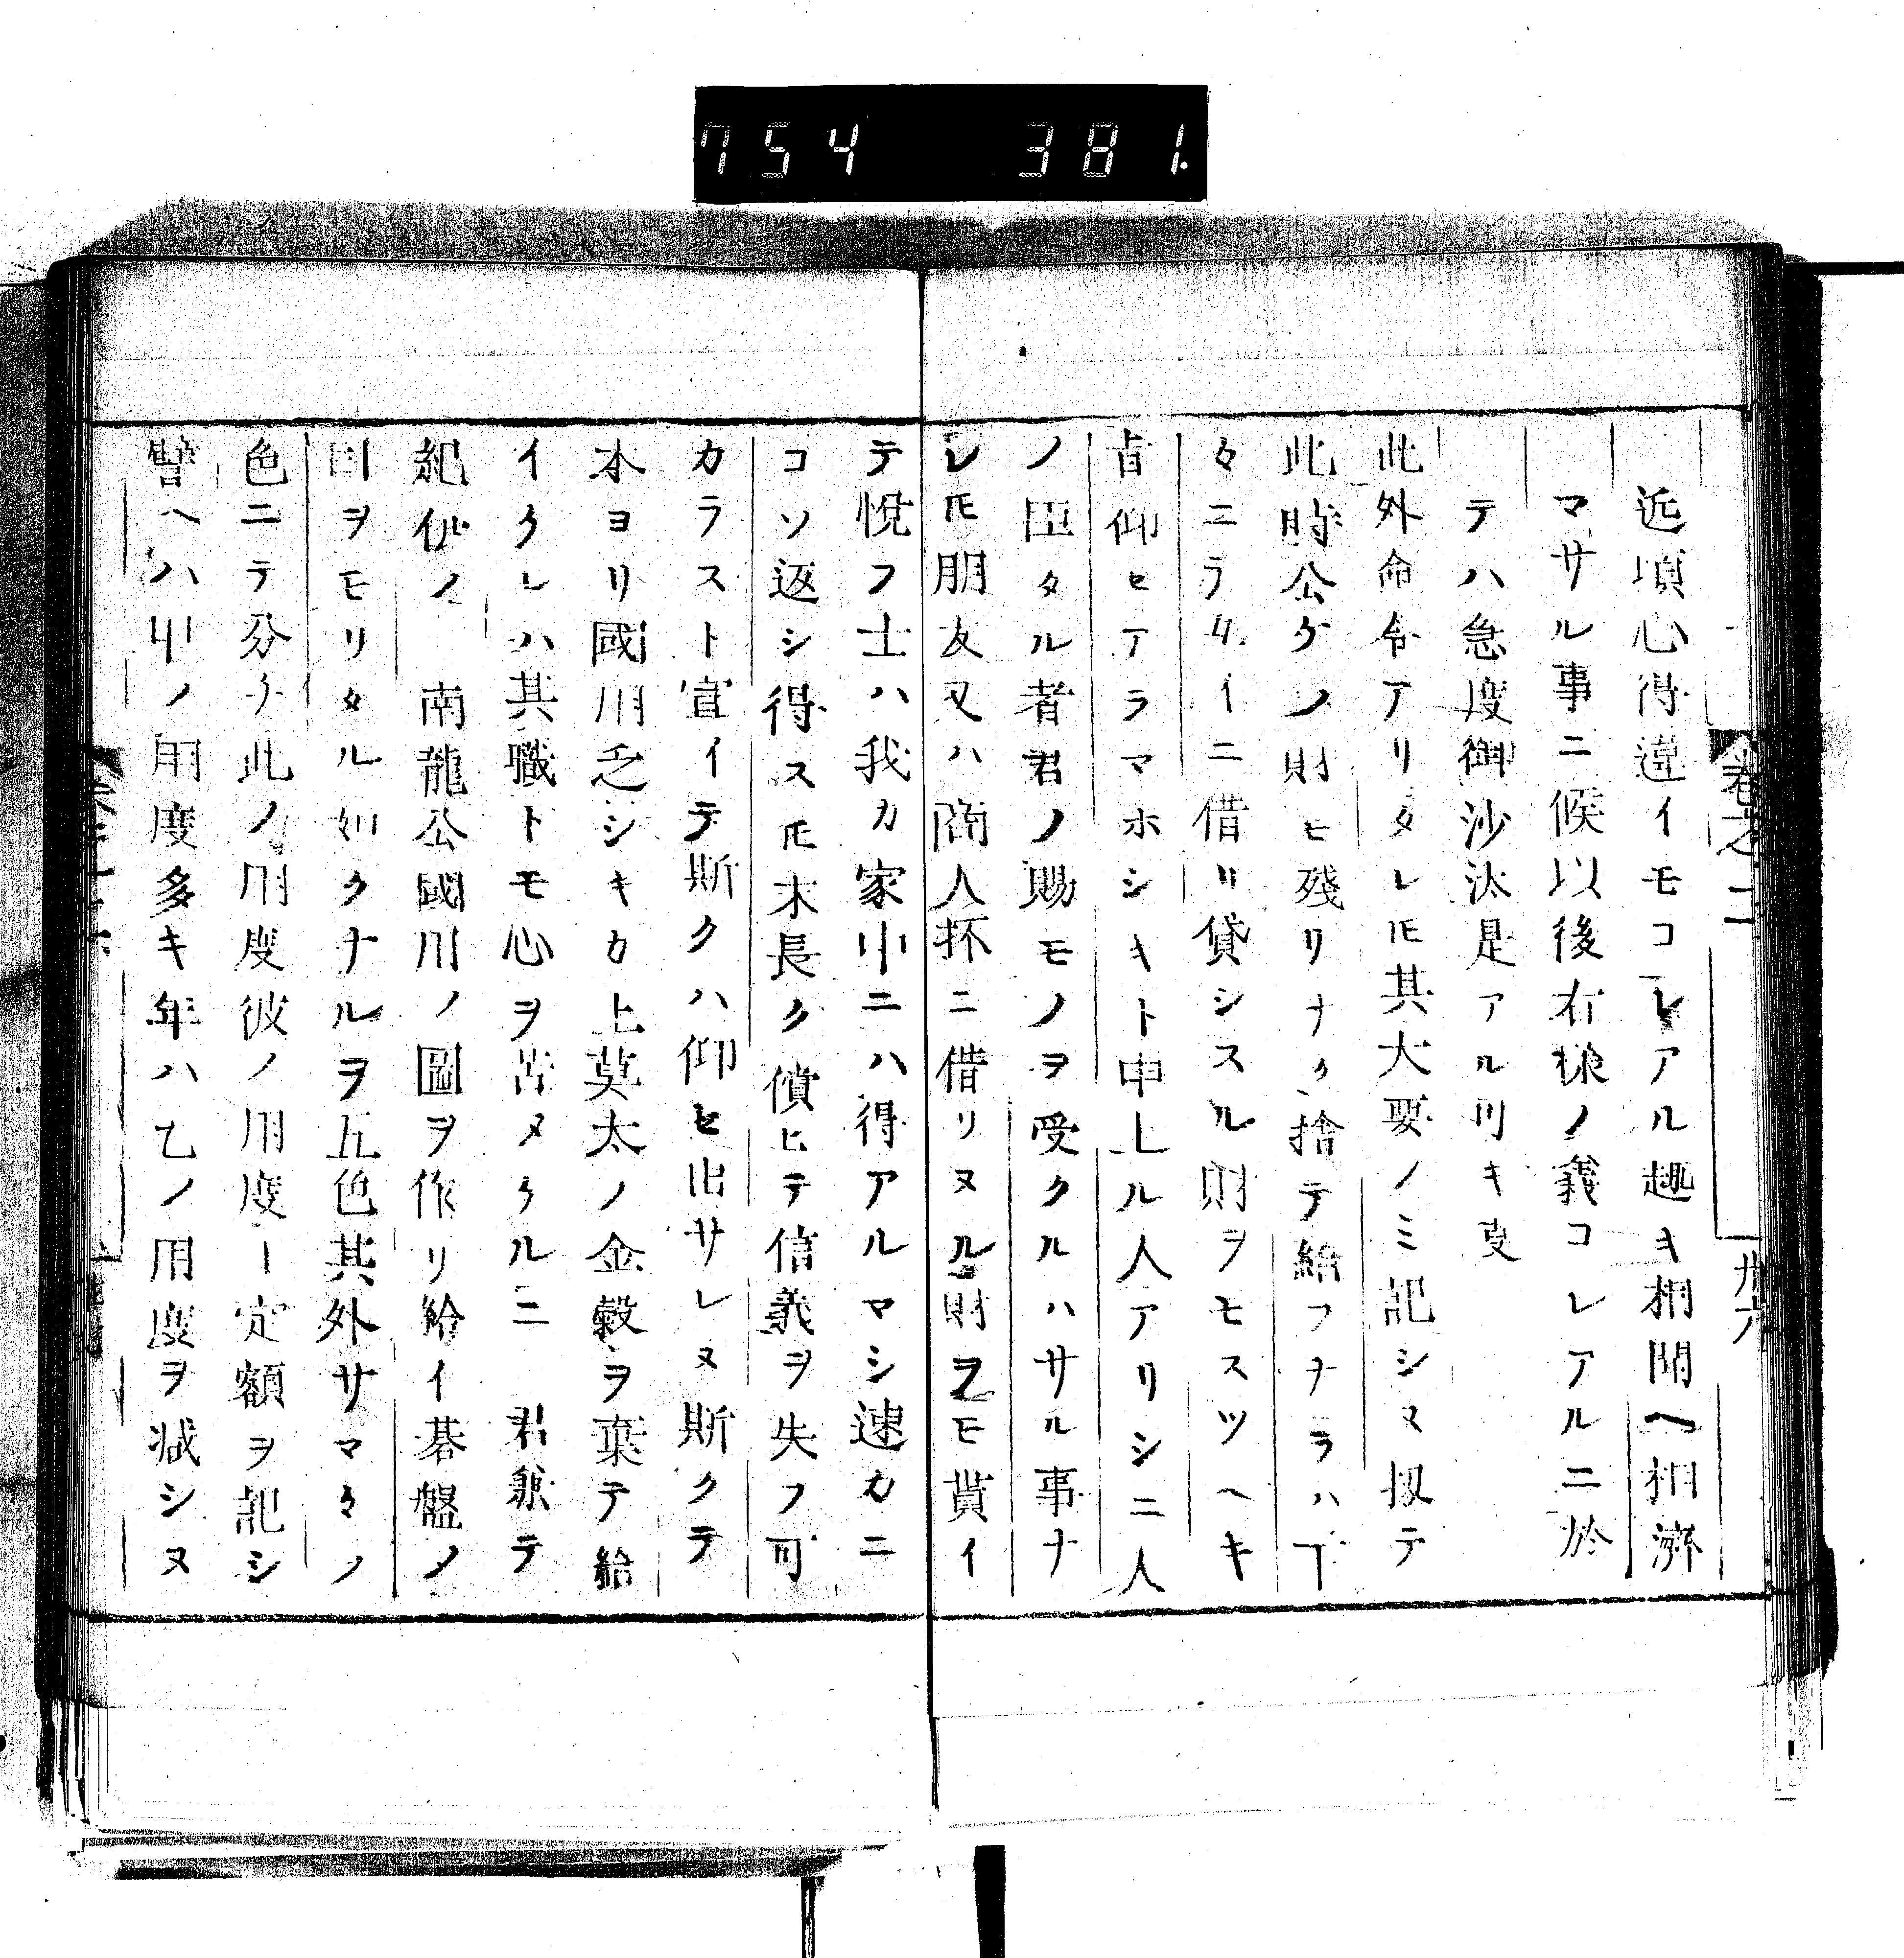 754 381.
卷之二
卅六
近頃心得違イモコレアル趣キ相聞ヘ相濟
マサル事ニ候以後右樣ノ義コレアルニ於
テハ急度御沙汰是アル可キ叓
此外命令アリタレ𪜈其大要ノミ記シヌ扨テ
此時公ケノ財ヒ残リナク捨テ給フナラハ下
々ニラ互イニ借リ貸シスル財ヲモスツヘキ
旨仰セアラマホシキト申上ル人アリシニ人
ノ臣タル者君ノ賜モノヲ受クルハサル事ナ
レ𪜈朋友又ハ商人抔ニ借リヌル財ヲモ貰イ
テ悦フ士ハ我カ家中ニハ得アルマシ速カニ
コソ返シ得ス𪜈末長ク償ヒテ信義ヲ失フ可
カラスト宣イテ斯クハ仰セ出サレヌ斯クテ
本ヨリ國用乏シキカ上莫太ノ金穀ヲ棄テ給
イケレハ其職トモ心ヲ苦メケルニ 君兼テ
紀伊ノ 南龍公國用ノ圖ヲ作リ給イ碁盤ノ
目ヲモリタル如クナルヲ五色其外サマ〱ノ
色ニテ分チ此ノ用度彼ノ用度一定額ヲ記シ
譬ヘハ甲ノ用度多キ年ハ乙ノ用度ヲ減シヌ